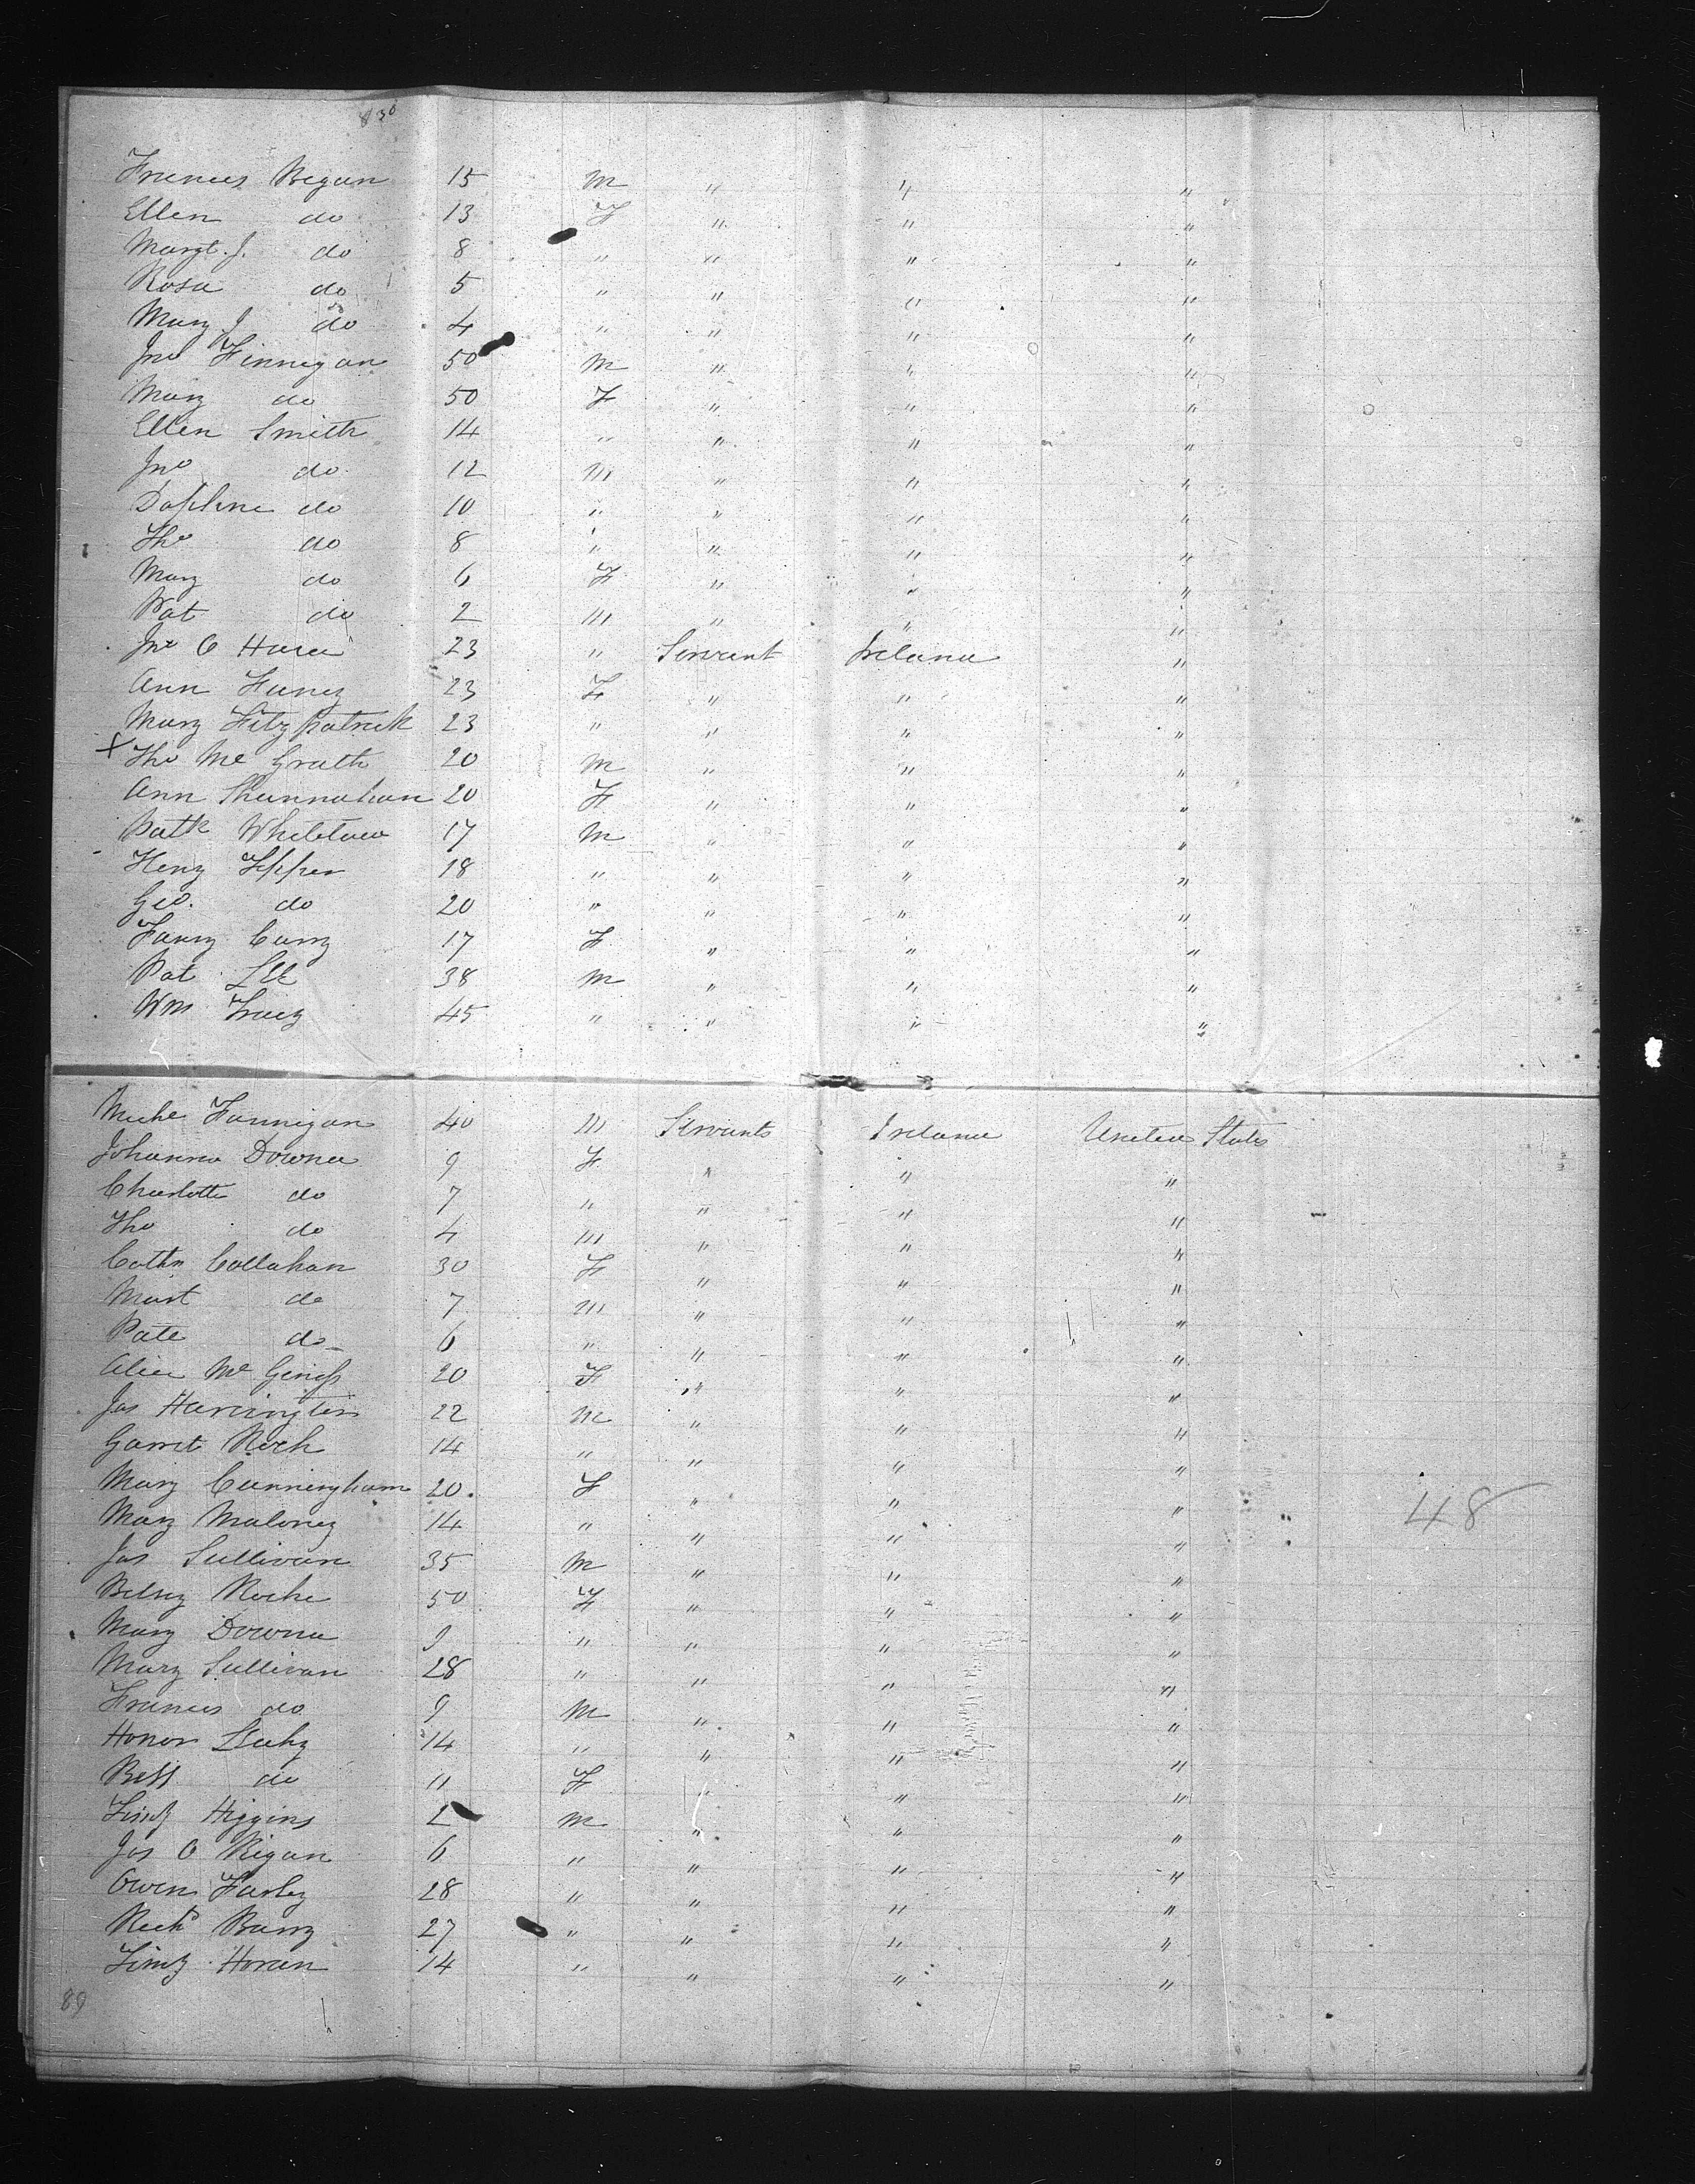 830
Frances Regan 15 M " " "
Ellen do 13 F " " "
Margt. J. do 8 " " " "
Rosa do 5 " " " "
Mary J do 4 " " " "
Jno Finnegan 50 M " " "
Mary do 50 F " " "
Ellen Smith 14 " " " "
Jno do 12 M " " "
Daphne do 10 " " " "
Tho do 8 " " " "
Mary do 6 F " " "
Pat do 2 M " " "
Jno O Hara 23 " Servant Ireland "
Ann Haney 23 F " " "
Mary Fitzpatrick 23 " " " "
X Tho Mc Grath 20 M " " "
Ann Shannahan 20 F " " "
Patk 17 M " " "
Heny 18 " " " "
Geo. do 20 " " " "
Fanny Curry 17 F " " "
Pat Lee 38 M " " "
Wm Tracy 45 " " " "
Miche Fannigan 40 M Servants Ireland United States
Johanna Downa 9 F " " "
Charlotte do 7 " " " "
Tho do 4 M " " "
Cathn Callahan 30 F " " "
Mart do 7 M " " "
Pate do 6 " " " "
Alice Mc Giness 20 F " " "
Jas Harrington 22 M " " "
Garret Roch 14 " " " "
Mary Cunningham 20 F " " "
48
Mary Maloney 14 " " " "
Jas Sullivan 35 M " " "
Betsey Roche 50 F " " "
Mary Downa 9 " " " "
Mary Sullivan 28 " " " "
Francis do 9 M " " "
Honor Leahy 14 " " " "
Bess do 11 F " " "
Timy Higgins 2 M " " "
Jas O Regan 6 " " " "
Owen Farley 28 " " " "
Richd Barry 27 " " " "
Timy Horan 14 " " " "
89